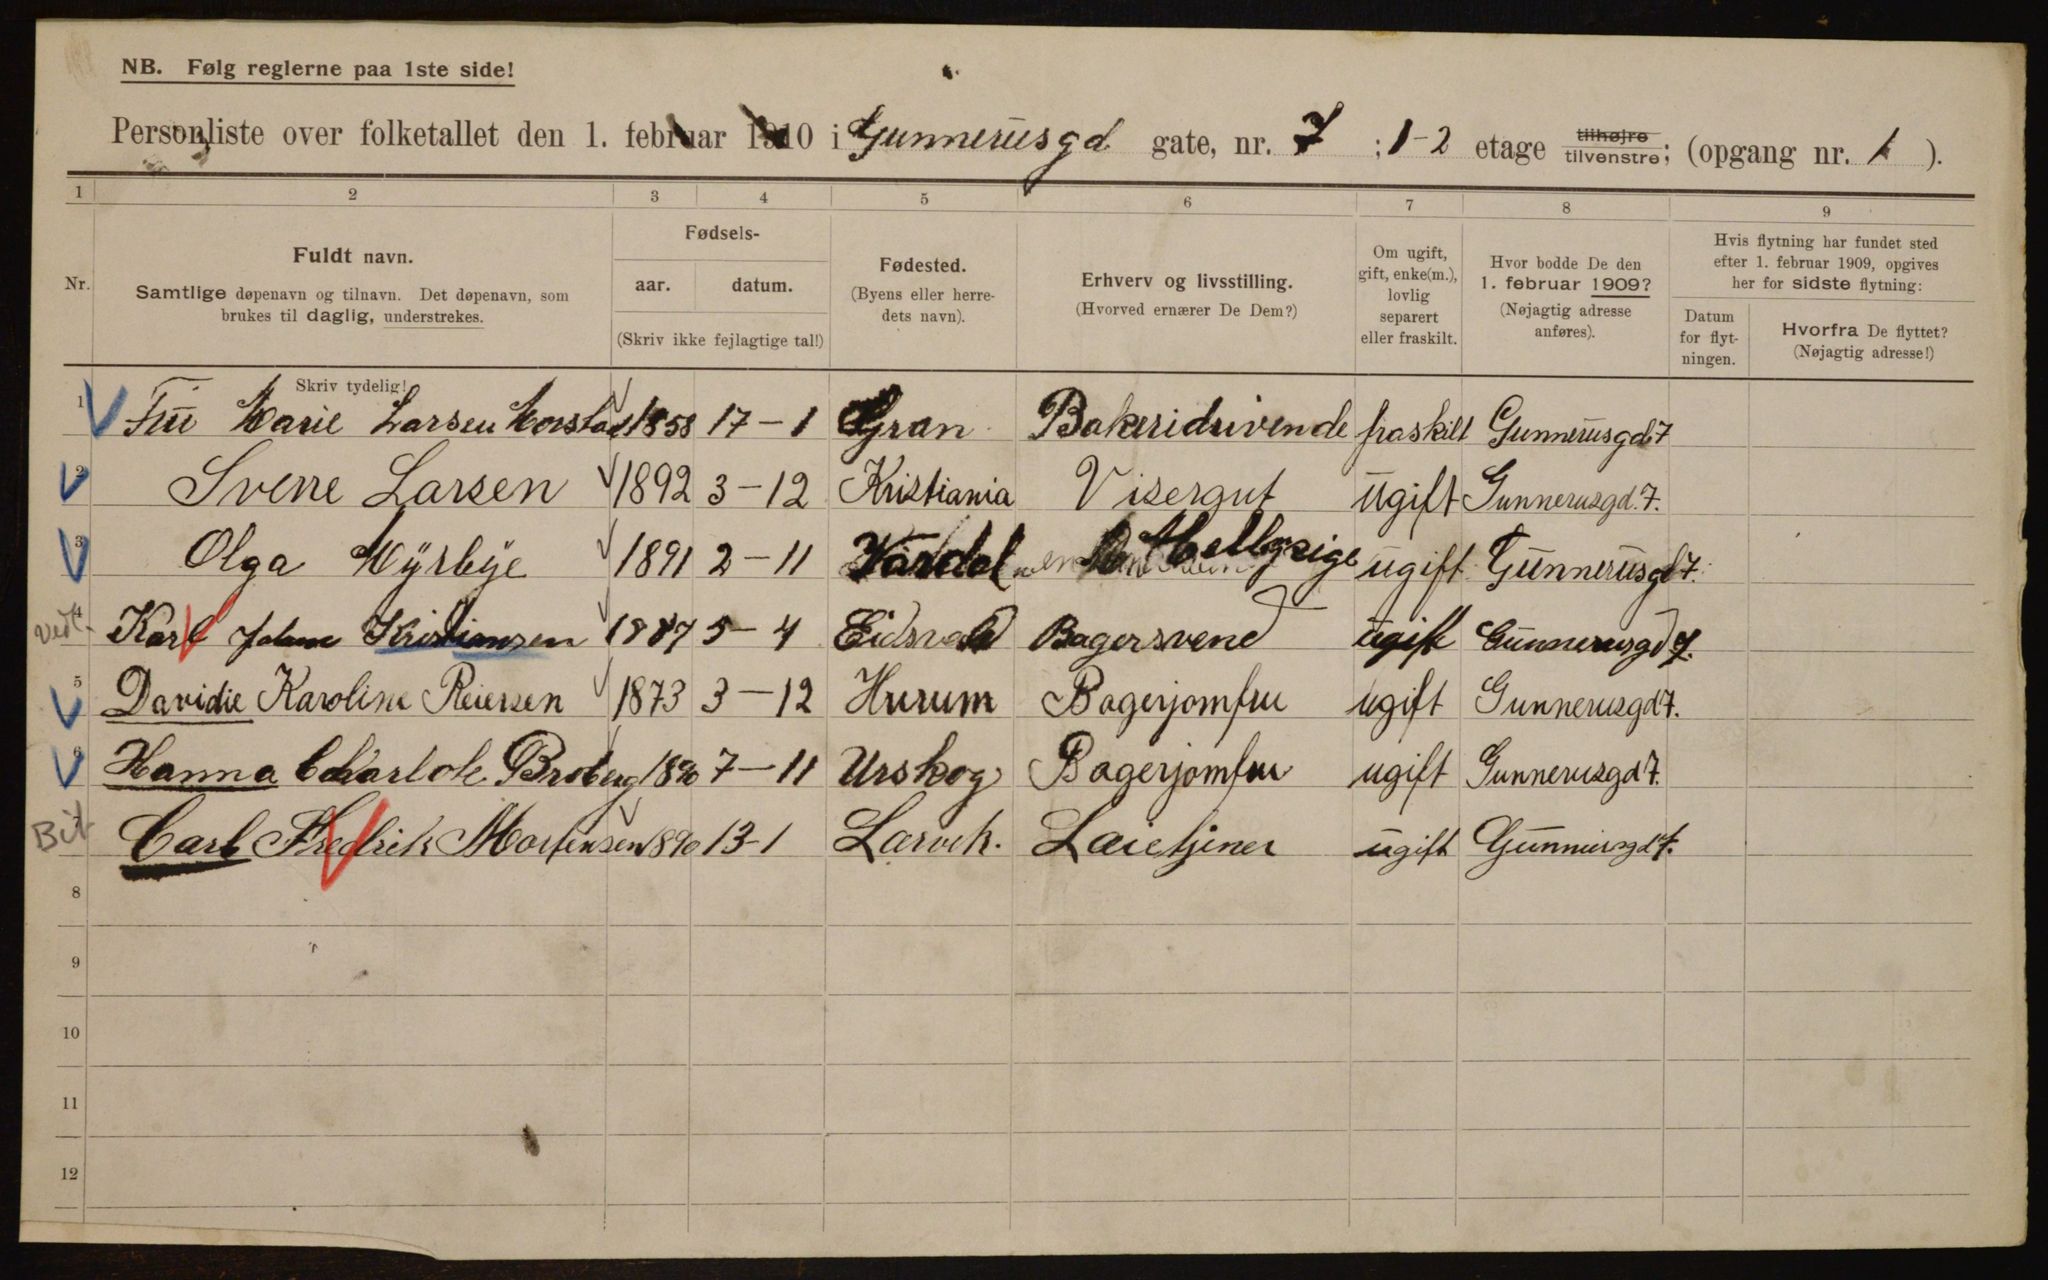 NB. Følg reglerne paa 1ste side!
Personliste over folketallet den 1. februar 1910 i Gunnerusgd gate, nr. 7 ; 1-2 etage tilhøjre tilvenstre; (opgang nr. 1 ).
1 2 3 4 5 6 7 8 9
Nr.
Fuldt navn.
Samtlige døpenavn og tilnavn. Det døpenavn, som
brukes til daglig, understrekes.
Fødsels-
aar. datum.
(Skriv ikke fejlagtige tal!)
Fødested.
(Byens eller herre-
dets navn).
Erhverv og livsstilling.
(Hvorved ernærer De Dem?)
Om ugift,
gift, enke(m.),
lovlig
separert
eller fraskilt.
Hvor bodde De den
1. februar 1909?
(Nøjagtig adresse
anføres).
Hvis flytning har fundet sted
efter 1. februar 1909, opgives
her for sidste flytning:
Datum
for flyt-
ningen.
Hvorfra De flyttet?
(Nøjagtig adresse!)
Skriv tydelig!
1 Fru Marie Larsen 1858 17-1 Gran Bakeridrivende fraskilt Gunnerusgd 7
2 Sverre Larsen 1892 3-12 Kristiania Visergut ugift Gunnerusgd. 7.
3 Olga Myrbye 1891 2-11 Vardal ugift Gunnerusgd 7.
4 Karl Johan Kristiansen 1887 5-4 Eidsvold Bagersvend ugift Gunnerusgd 7.
5 Davidie Karoline Reiersen 1873 3-12 Hurum Bagerjomfru ugift Gunnerusgd 7.
6 Hanna Charlote Broberg 1890 7-11 Urskog Bagerjomfru ugift Gunnerusgd 7.
Bit Carl Fredrik Mortensen 1890 13-1 Larvik. ugift Gunnerusgd 7.
8
9
10
11
12